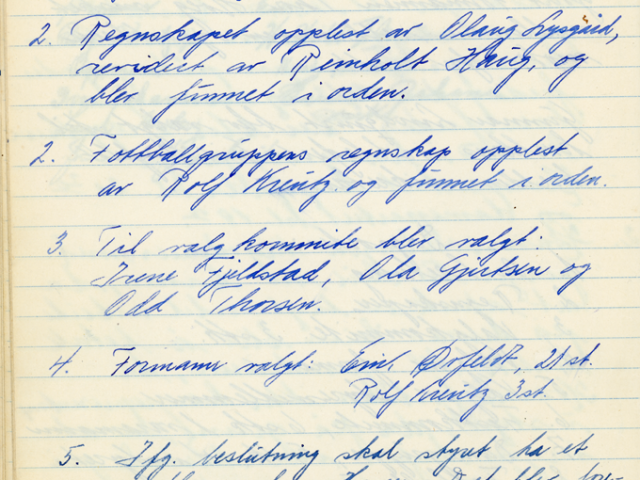 2. Regnskapet opplest av Olaug Lysgård,
revidert av Reinholt Haug, og
blev funnet i orden.
2. Fottballgruppens regnskap opplest
av Rolf Kreutz og funnet i orden.
3. Til valgkommite blev valgt:
Irene Fjeldstad, Ola Gjertsen og
Odd Thorsen.
4. Formann valgt: 21 st.
Rolf Kreutz 3 st.
5. Ifg. beslutning skal styret ha et